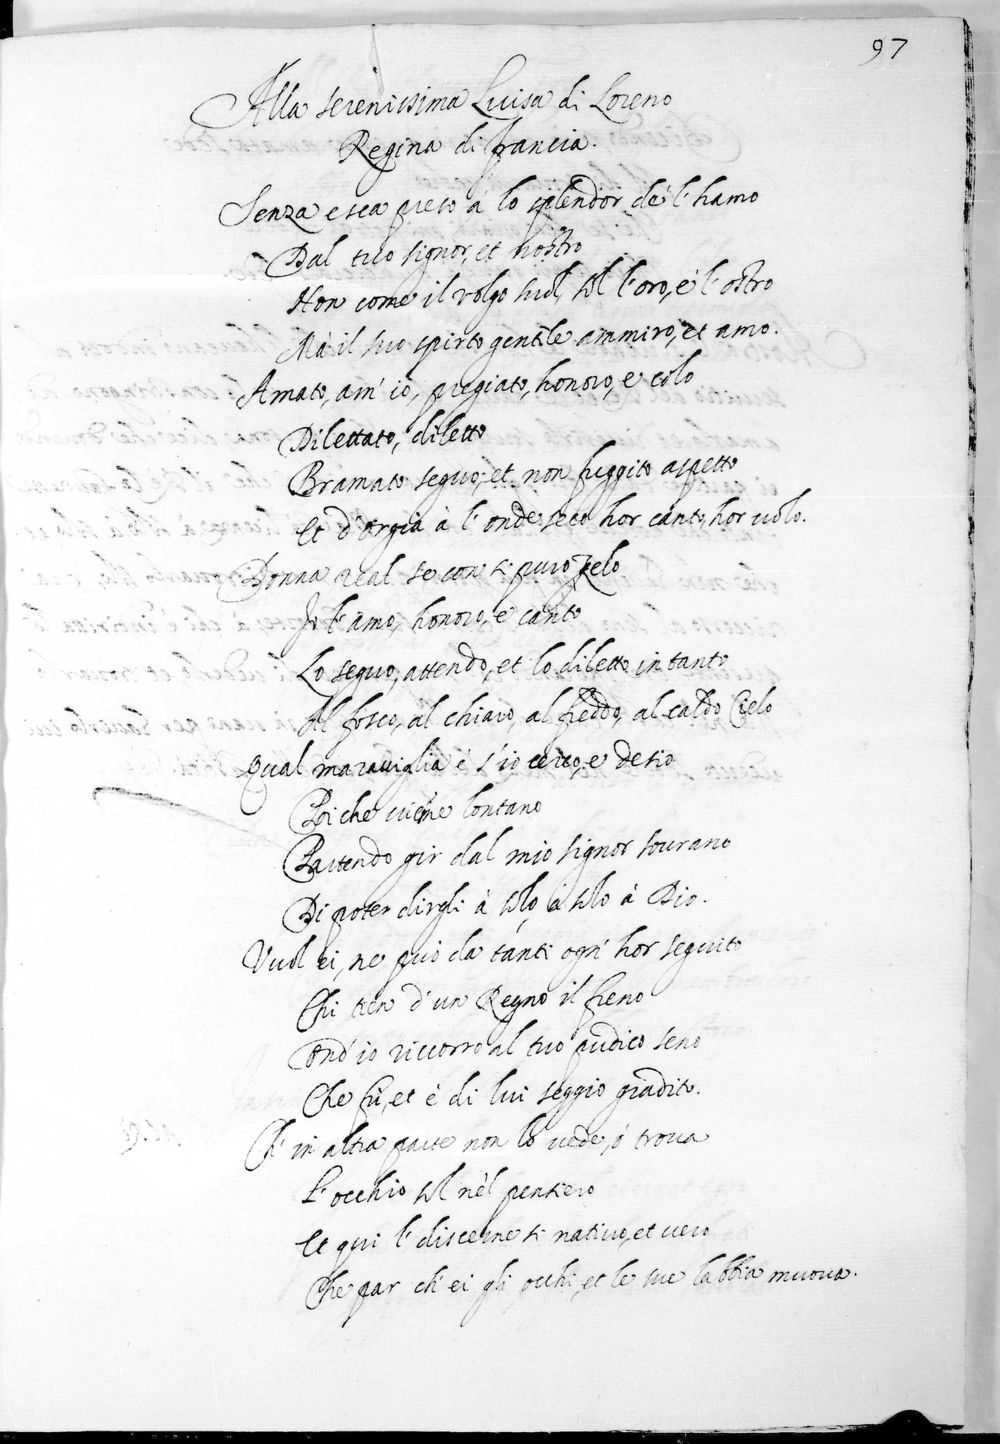 97
Alla serenissima Luisa di Loreno
Regina di francia.
Senza esca preso à lo splendor de l'hamo
Dal tuo signor, et nostro
Non come il volgo suol, sol l'oro, e l'ostro
Mà il suo spirto gentile ammiro, et amo.
Amato, am' io, pregiato, honoro, e colo
Dilettato, diletto
Bramato seguo, et non fuggito aspetto
Et d'Orgia à l'onde seco hor canto, hor volo.
Donna real se con si puro zelo
Io l'amo, honoro, e canto
Lo seguo, attendo, et lo diletto in tanto
Al fosco, al chiaro, al freddo, al caldo Cielo
Qual marauiglia è s'io cerco, e desio
Poi che lontano
Partendo gir dal mio signor sourano
Di poter dirgli à solo, à solo à Dio.
Vuol ei, ne può da tanti ogn' hor seguito
Chi tien d'un Regno il freno
Ond' io riccorro al tuo pudico seno
Che fù, et è di lui seggio gradito.
Ch' in altra parte non lo uede, ò troua
L'occhio sol nel pensiero
Et qui l' discerne si natiuo, et uero
Che par ch' ei gli occhi, et le sue labbia muoua.